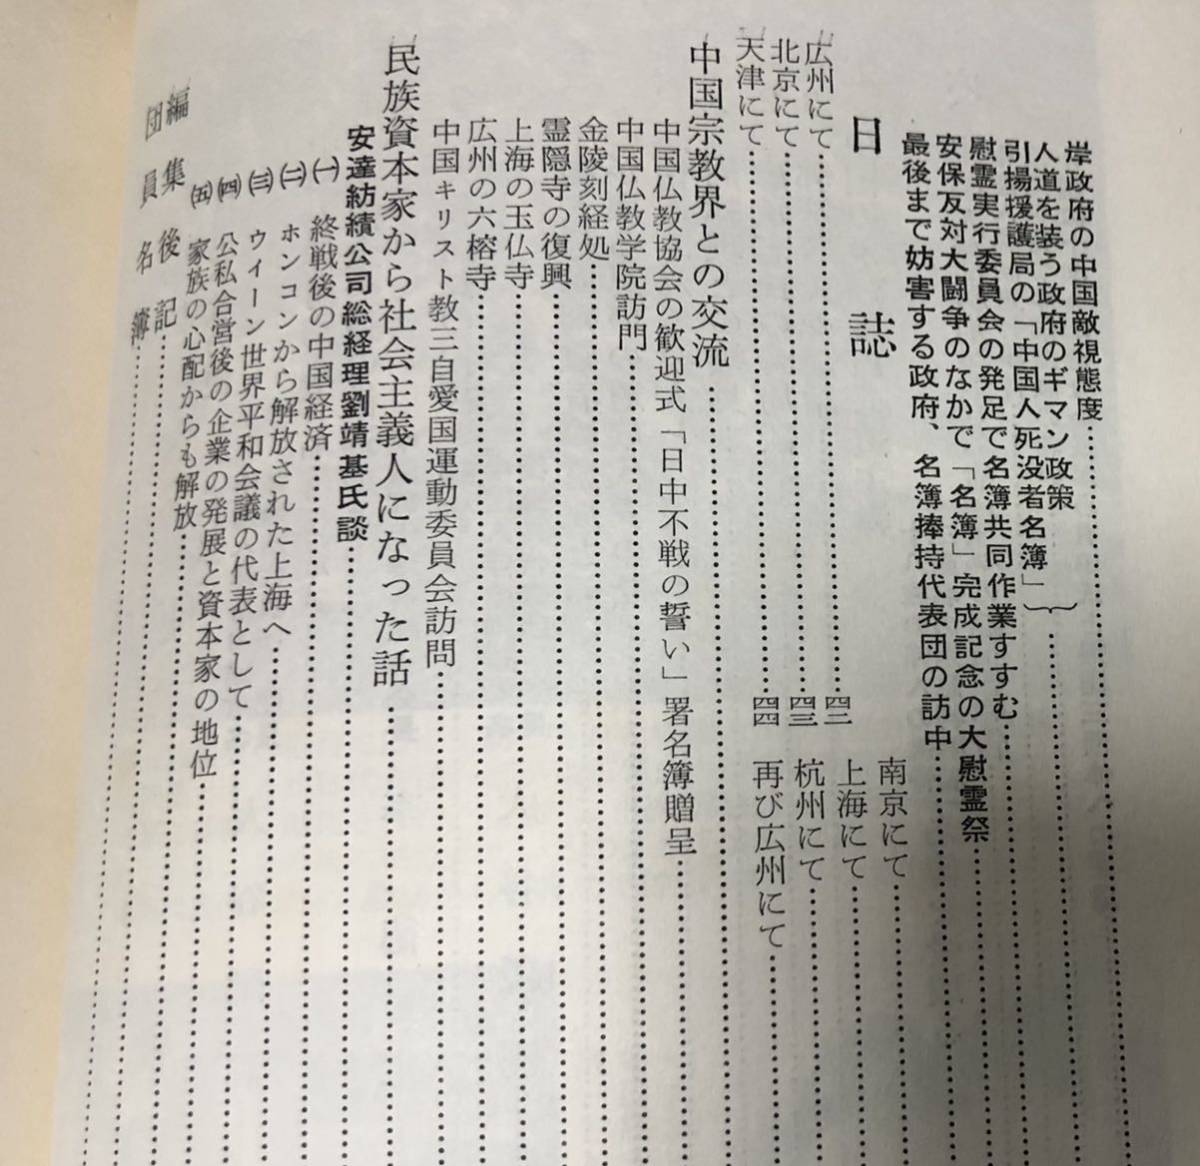 岸政府の中国敵視態度
人道を装う政府のギマン政策
引揚援護局の「中国人死没者名簿」
慰霊実行委員会の発足で名簿共同作業すすむ
安保反対大闘争のなかで「名簿」完成記念の大慰霊祭
最後まで妨害する政府、名簿捧持代表団の訪中
日誌
広州にて
北京にて
天津にて
南京にて
上海にて
杭州にて
再び広州にて
中国宗教界との交流
中国仏教協会の歓迎式「日中不戦の誓い」署名簿贈呈
中国仏教学院訪問
金陵刻経処
霊隠寺の復興
上海の玉仏寺
広州の六榕寺
中国キリスト教三自愛国運動委員会訪問
民族資本家から社会主義人になった話
安達紡績公司総経理劉靖基氏談
㈠ 終戦後の中国経済
㈡ ホンコンから解放された上海へ
㈢ ウイーン世界平和会議の代表として
㈣ 公私合営後の企業の発展と資本家の地位
㈤ 家族の心配からも解放
編集後記
団員名簿